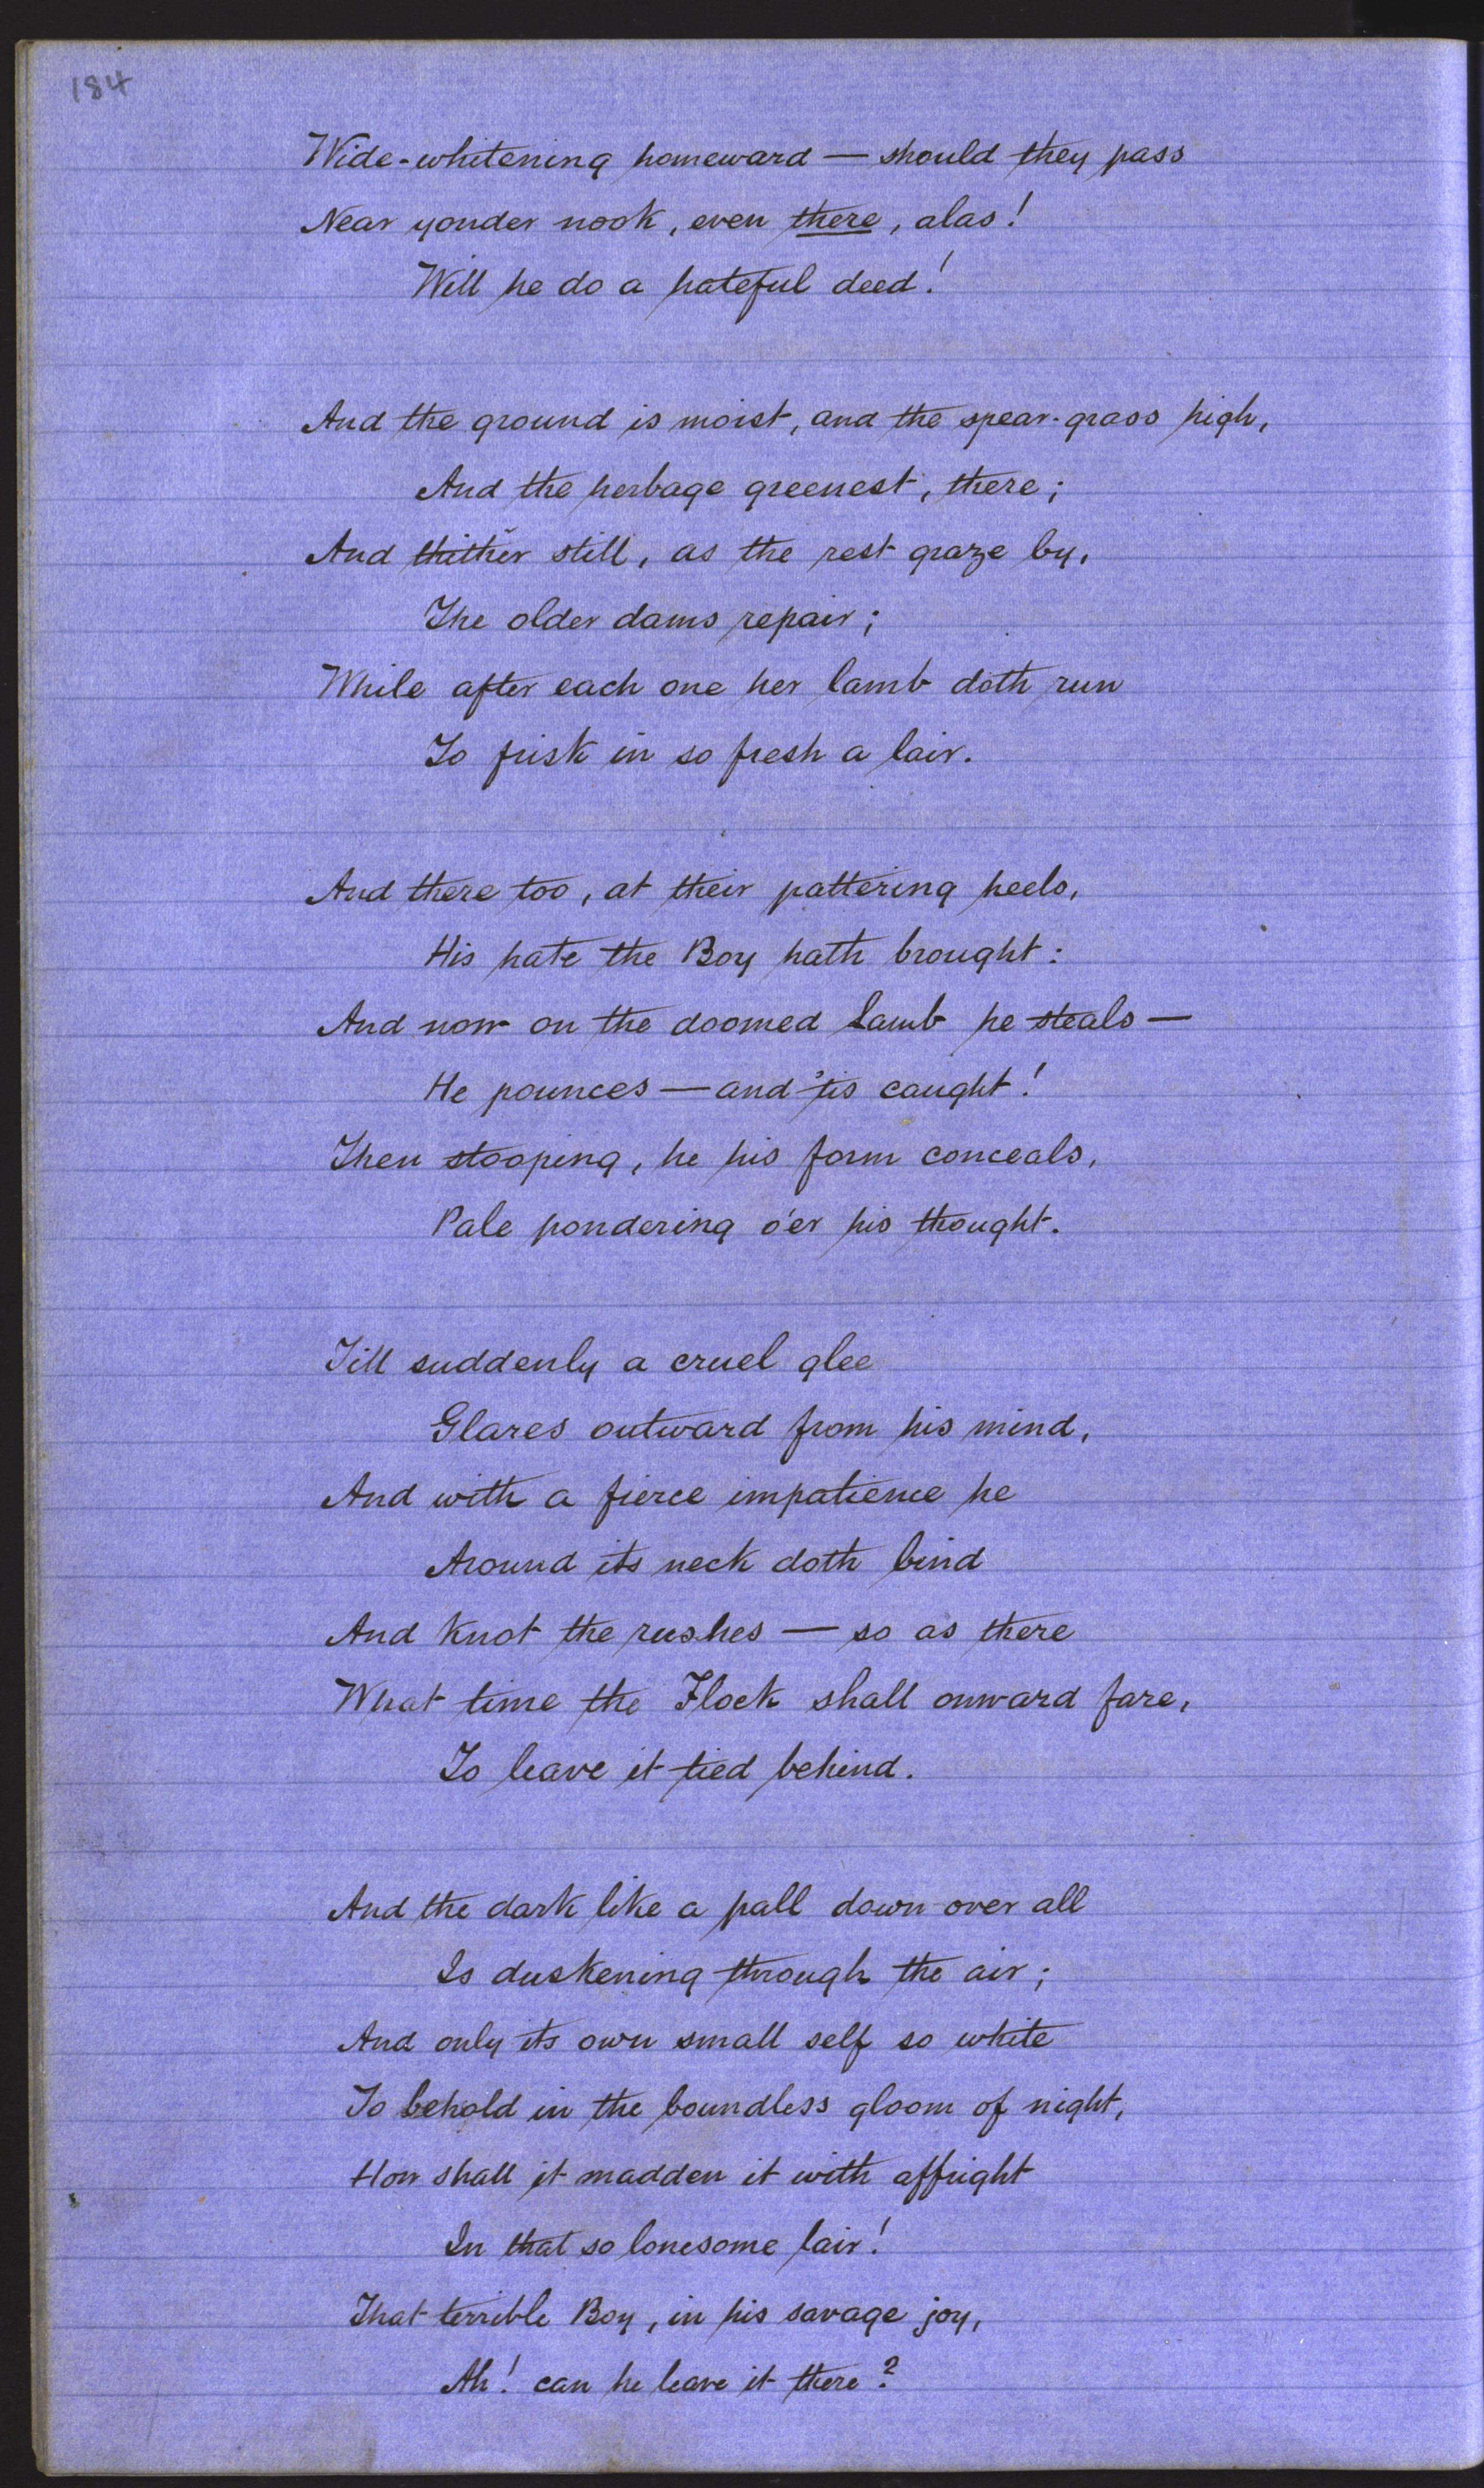 184
Wide-whitening homeward — should they pass
Near yonder nook, even there, alas!
Will he do a hateful deed!
And the ground is moist, and the spear-grass high,
And the herbage greenest, there;
And thither still, as the rest graze by,
The older dams repair;
While after each one her lamb doth run
To frisk in so fresh a lair.
And there too, at their pattering heels,
His hate the Boy hath brought:
And now on the doomed Lamb he steals —
He pounces — and 'tis caught!
Then stooping, he his form conceals,
Pale pondering o'er his thought.
Till suddenly a cruel glee
Glares outward from his mind,
And with a fierce impatience he
Around its neck doth bind
And knot the rushes — so as there
What time the Flock shall onward fare,
To leave it tied behind.
And the dark like a pall down over all
Is duskening through the air;
And only its own small self so white
To behold in the boundless gloom of night,
How shall it madden it with affright
In that so lonesome lair!
That terrible Boy, in his savage joy,
Ah! can he leave it there?